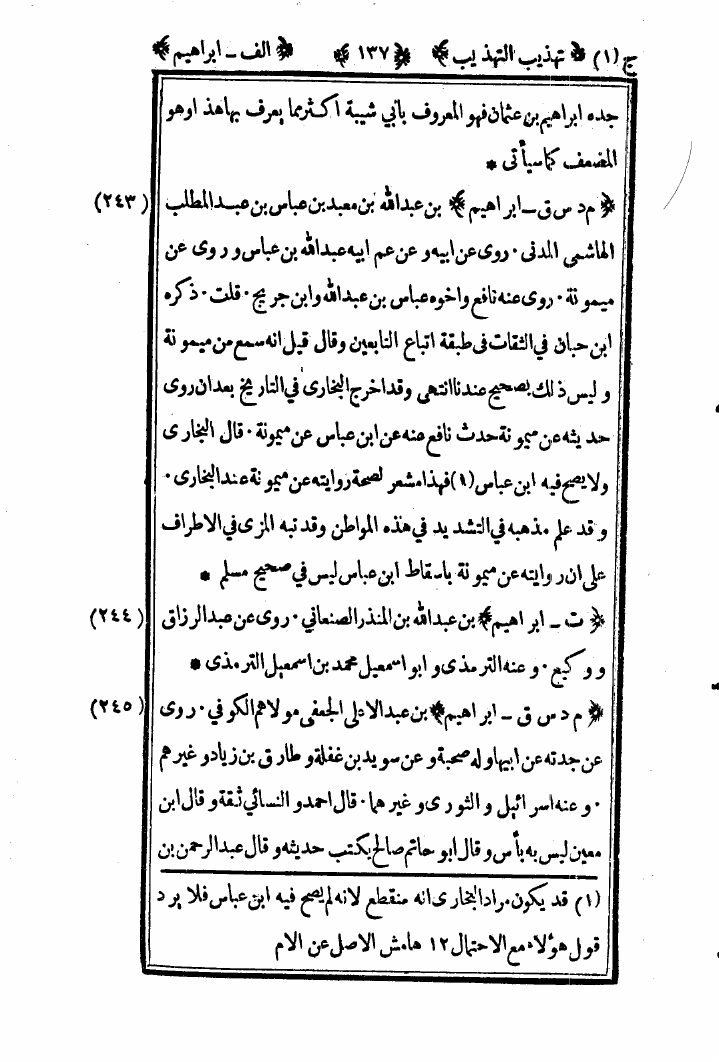 ج (١) ﴿ تهذيب التهذيب ﴾ ﴿ ١٣٧ ﴾ ﴿ الف ـ ابراهيم ﴾
جده ابراهيم بن عثمان فهو المعروف بأبي شيبة اكثر مما يعرف بها هذا وهو
المضعف كما سيأتى *
﴿ م د س ق ـ ابراهيم ﴾ بن عبدالله بن معبد بن عباس بن عبد المطلب (٢٤٣)
الهاشمى المدنى . روى عن ابيه و عن عم ابيه عبدالله بن عباس و روى عن
ميمونة . روى عنه نافع واخوه عباس بن عبدالله وابن جريج . قلت . ذكره
ابن حبان في الثقات فى طبقة اتباع التابعين وقال قيل انه سمع من ميمونة
و ليس ذلك بصحيح عندنا انتهى وقد اخرج البخارى في التاريخ بعد ان روى
حديثه عن ميمونة حدث نافع عنه عن ابن عباس عن ميمونة . قال البخارى
ولا يصح فيه ابن عباس (١) فهذا مشعر لصحة روايته عن ميمونة عند البخارى .
و قد علم مذهبه في التشديد في هذه المواطن وقد نبه المزى في الاطراف
على ان روايته عن ميمونة باسقاط ابن عباس ليس في صحيح مسلم *
﴿ ت ـ ابراهيم ﴾ بن عبدالله بن المنذر الصنعاني . روى عن عبد الرزاق (٢٤٤)
و وكيع . و عنه الترمذى و ابو اسمعيل محمد بن اسمعيل الترمذى *
﴿ م د س ق ـ ابراهيم ﴾ بن عبد الاعلى الجعفى مولاهم الكوفي . روى (٢٤٥)
عن جدته عن ابيها وله صحبة و عن سويد بن غفلة و طارق بن زياد و غيرهم
. و عنه اسرائيل و الثورى و غيرهما . قال احمد و النسائي ثقة و قال ابن
معين ليس به بأس و قال ابو حاتم صالح يكتب حديثه و قال عبد الرحمن بن
(١) قد يكون مراد البخارى انه منقطع لانه لم يصح فيه ابن عباس فلا يرد
قول هؤلاء مع الاحتمال ١٢ هامش الاصل عن الام